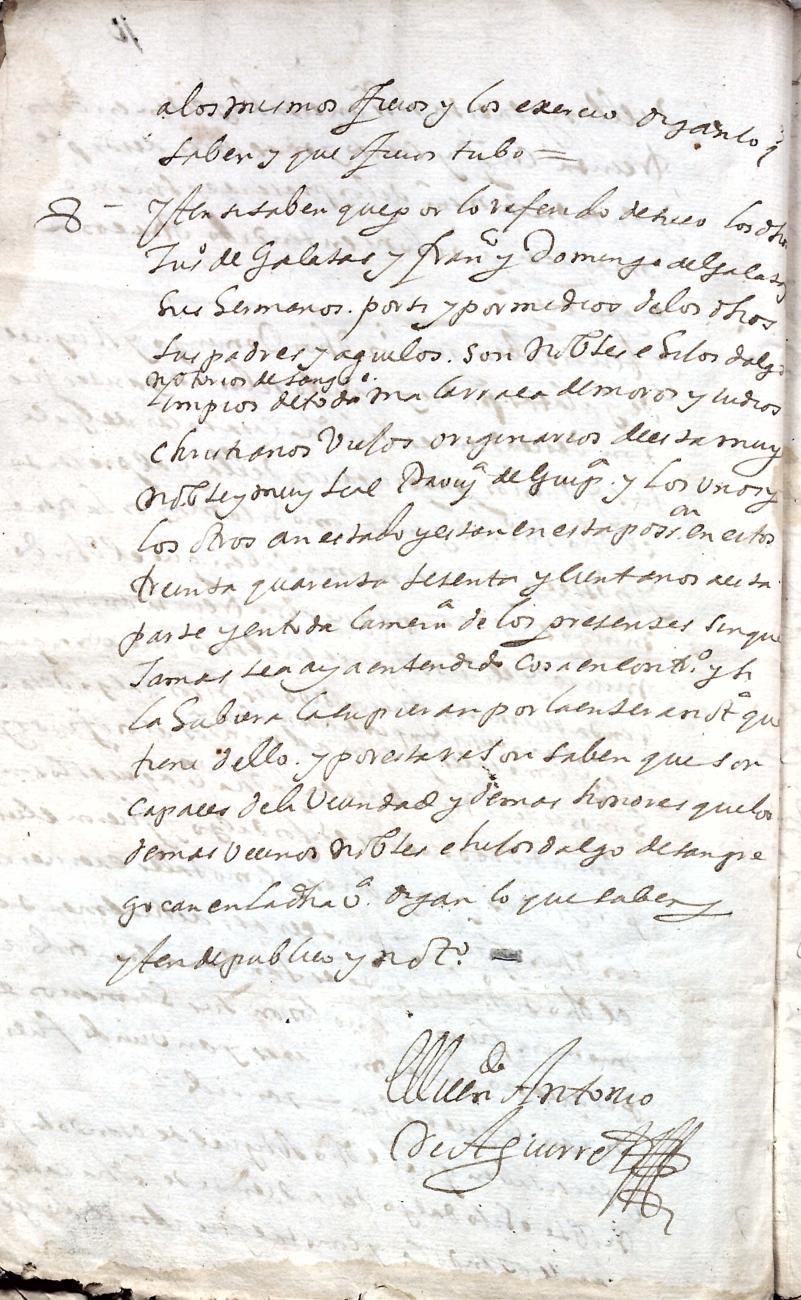 a los mismos offiçios y los exercio digan lo q
saben y que offiçios tubo =
8 - Yten si saben que por lo referido de suso los dhos
Ju.º de Galatas y fran.co y Domingo de Galatas
sus hermanos. por si y por medios de los dhos
sus padres y aguelos. son nobles e hijos dalgo
notorios de sangre.
limpios de toda mala rraca de moros y judios
christianos viejos originarios de esta muy
noble y muy leal Prouy.ª de Guip.ª y los unos y
los otros an estado y estan en esta poss.on en estos
treinta quarenta sesenta y cient anos a esta
parte y en toda la mem.ª de los presentes sin que
Jamas se aya entendido cosa en contr.º y si
la hubiera la supieran por la entera not.ª que
tiene dello. y por esta rason saben que son
capaces de la Vecindad y demas honores que los
demas vecinos nobles e hijos dalgo de sangre
gocan en la dha v.ª digan lo que saben y
yten de publico y not.º
El Licen.do Antonio
de Aguirre